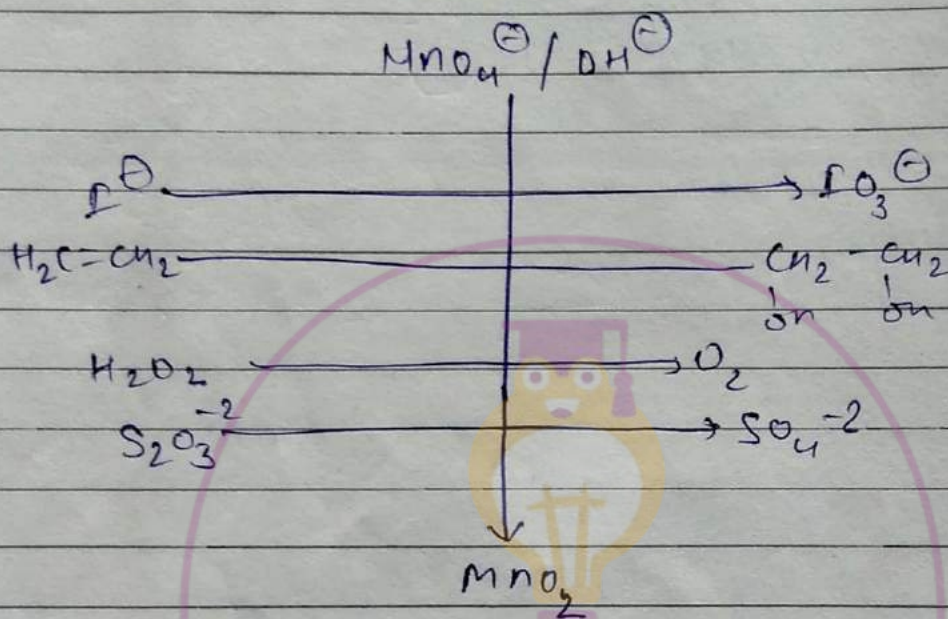 MnO₄⊖ / OH⊖
I⊖ → IO₃⊖
H₂C-CH₂ — CH₂-CH₂
OH OH
H₂O₂ → O₂
S₂O₃⁻² → SO₄⁻²
MnO₂